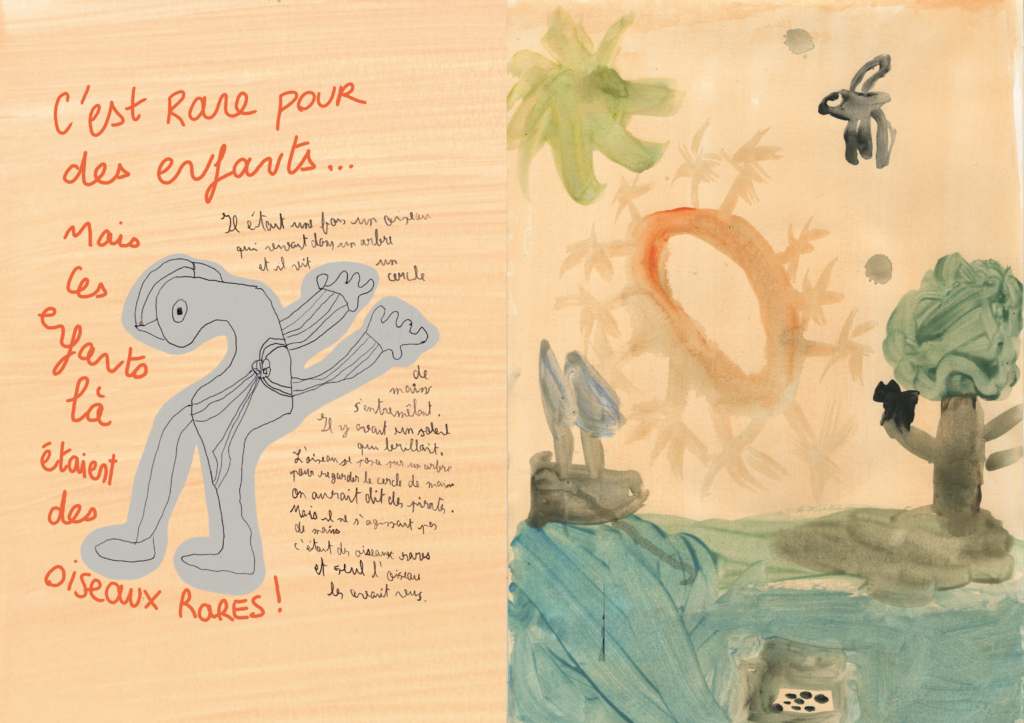 C'est Rare pour
des enfants...
Mais
ces
enfants
là
étaient
des
oiseaux RARES !
Il était une fois un oiseau
qui rentrait dans un arbre
et il vit un
cercle
de
mains
s'entremêlant.
Il y avait un soleil
qui brillait.
L'oiseau se posa sur un arbre
pour regarder le cercle de mains
on aurait dit des pirates.
Mais il ne s'agissait pas
de mains
c'était des oiseaux rares
et seul l'oiseau
les avait vus.